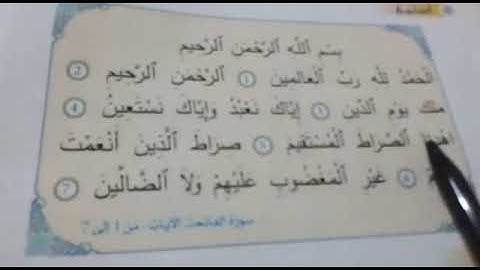 بِسْمِ ٱللَّهِ ٱلرَّحْمَنِ ٱلرَّحِيمِ
ٱلْحَمْدُ لِلَّهِ رَبِّ ٱلْعَالَمِينَ 1 ٱلرَّحْمَنِ ٱلرَّحِيمِ 2
مَلِكِ يَوْمِ ٱلدِّينِ إِيَّاكَ نَعْبُدُ وَإِيَّاكَ نَسْتَعِينُ 4
ٱلصِّرَاطَ ٱلْمُسْتَقِيمَ 5 صِرَاطَ ٱلَّذِينَ أَنْعَمْتَ
6 غَيْرِ ٱلْمَغْضُوبِ عَلَيْهِمْ وَلَا ٱلضَّالِّينَ 7
سورة الفاتحة، الآيات : من 1 إلى 7